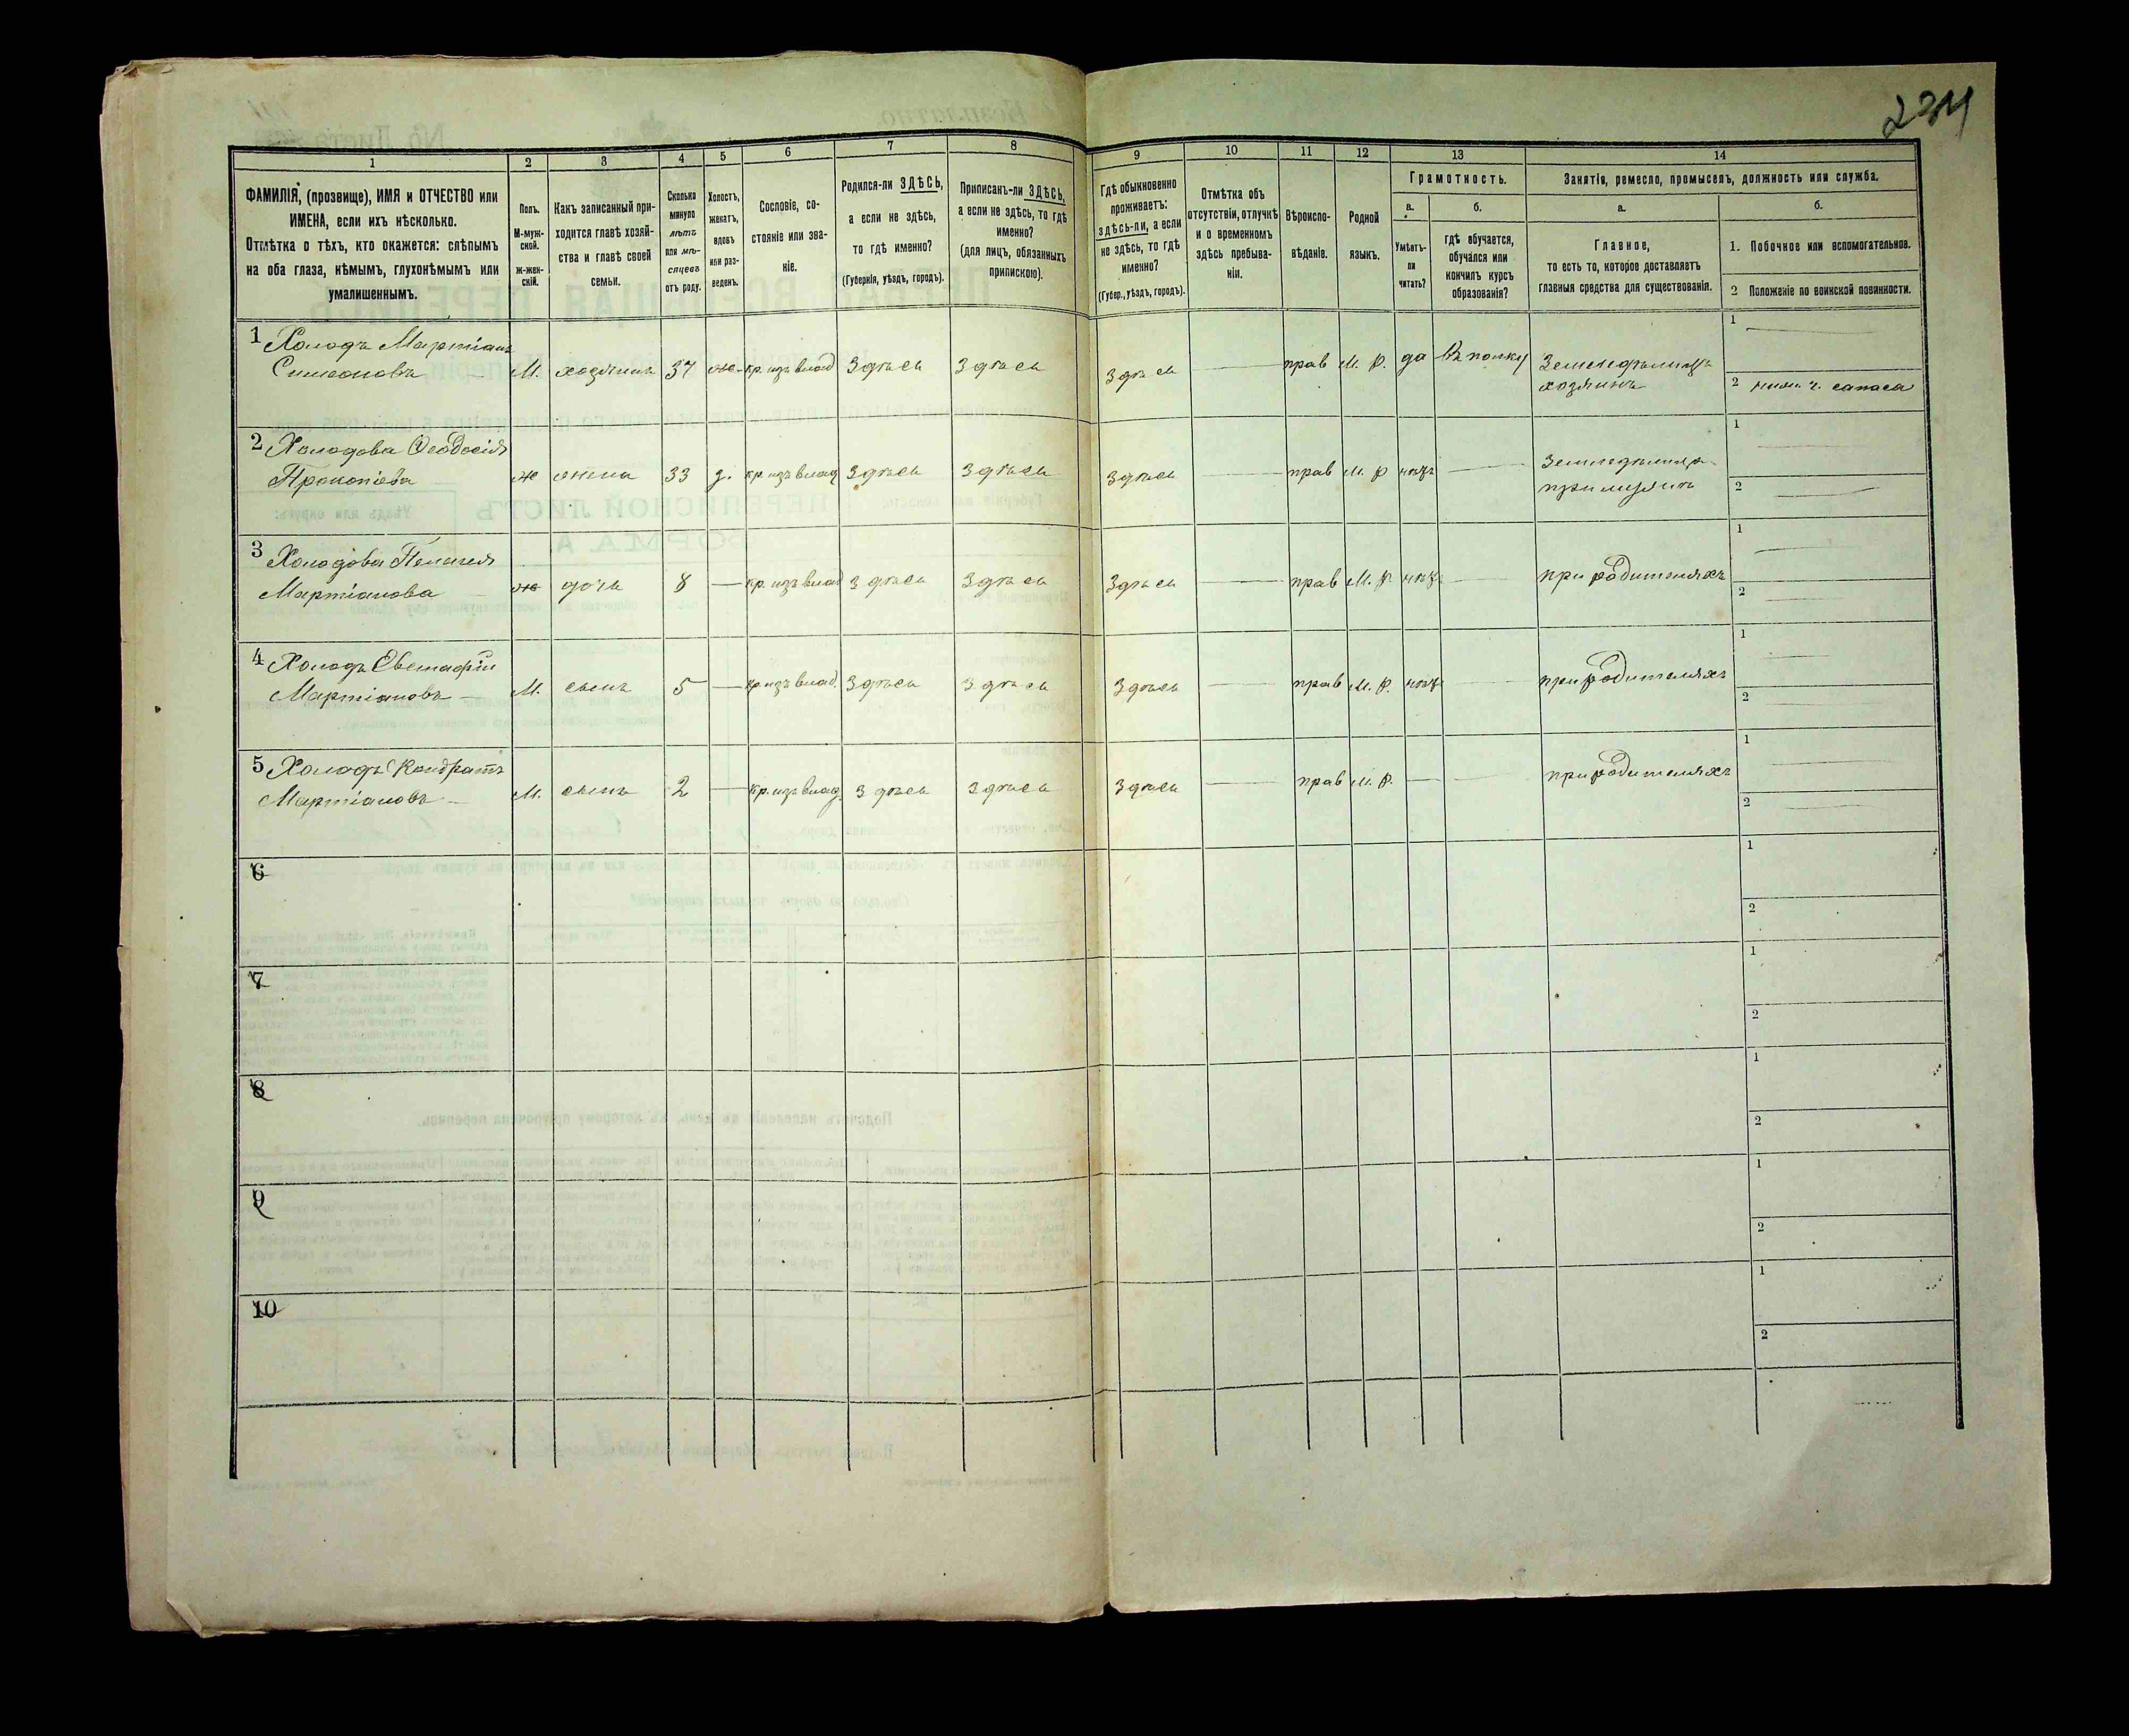 234
1 2 3 4 5 6 7 8 9 10 11 12 13 14
ФАМИЛІЯ, (прозвище), ИМЯ и ОТЧЕСТВО или
ИМЕНА, если ихъ нѣсколько.
Отмѣтка о тѣхъ, кто окажется: слѣпымъ
на оба глаза, нѣмымъ, глухонѣмымъ или
умалишеннымъ.
Полъ.
М-муж-
ской.
ж-жен-
скій.
Какъ записанный при-
ходится главѣ хозяй-
ства и главѣ своей
семьи.
Сколько
минуло
лѣтъ
или мѣ-
сяцевъ
отъ роду.
Холостъ,
женатъ,
вдовъ
или раз-
веденъ.
Сословіе, со-
стояніе или зва-
ніе.
Родился-ли ЗДѢСЬ,
а если не здѣсь,
то гдѣ именно?
(Губернія, уѣздъ, городъ).
Приписанъ-ли ЗДѢСЬ,
а если не здѣсь, то гдѣ
именно?
(для лицъ, обязанныхъ
припискою).
Гдѣ обыкновенно
проживаетъ:
здѣсь-ли, а если
не здѣсь, то гдѣ
именно?
(Губер., уѣздъ, городъ).
Отмѣтка объ
отсутствіи, отлучкѣ
и о временномъ
здѣсь пребыва-
ніи.
Вѣроиспо-
вѣданіе.
Родной
языкъ.
Грамотность.
а.
Умѣетъ-
ли
читать?
б.
гдѣ обучается,
обучался или
кончилъ курсъ
образованія?
Занятія, ремесло, промыселъ, должность или служба.
а.
Главное,
то есть то, которое доставляетъ
главныя средства для существованія.
б.
1. Побочное или вспомогательное.
2 Положеніе по воинской повинности.
1 Холодъ Мартіанъ
Симеоновъ М. хозяинъ 37 ж. кр. изъ влад Здѣсь Здѣсь Здѣсь прав М. р. да въ полку Земледѣлецъ
хозяинъ
1
2
2 Холодова Ѳеодосія
Прокопіева ж жена 33 з. кр. изъ влад Здѣсь Здѣсь Здѣсь прав М. р нѣтъ
при мужѣ
1
2
3 Холодова Пелагея
Мартіанова ж дочь 8 кр. изъ влад Здѣсь Здѣсь Здѣсь прав М. р нѣтъ при родителяхъ
1
2
4 Холодъ Евстафій
Мартіановъ М. сынъ 5 кр. изъ влад. Здѣсь Здѣсь Здѣсь прав М. р. нѣтъ при родителяхъ
1
2
5 Холодъ Кондратъ
Мартіановъ М. сынъ 2 кр. изъ влад. Здѣсь Здѣсь Здѣсь прав М. р. при родителяхъ
1
2
6
1
2
7
1
2
8
1
2
9
1
2
10
1
2